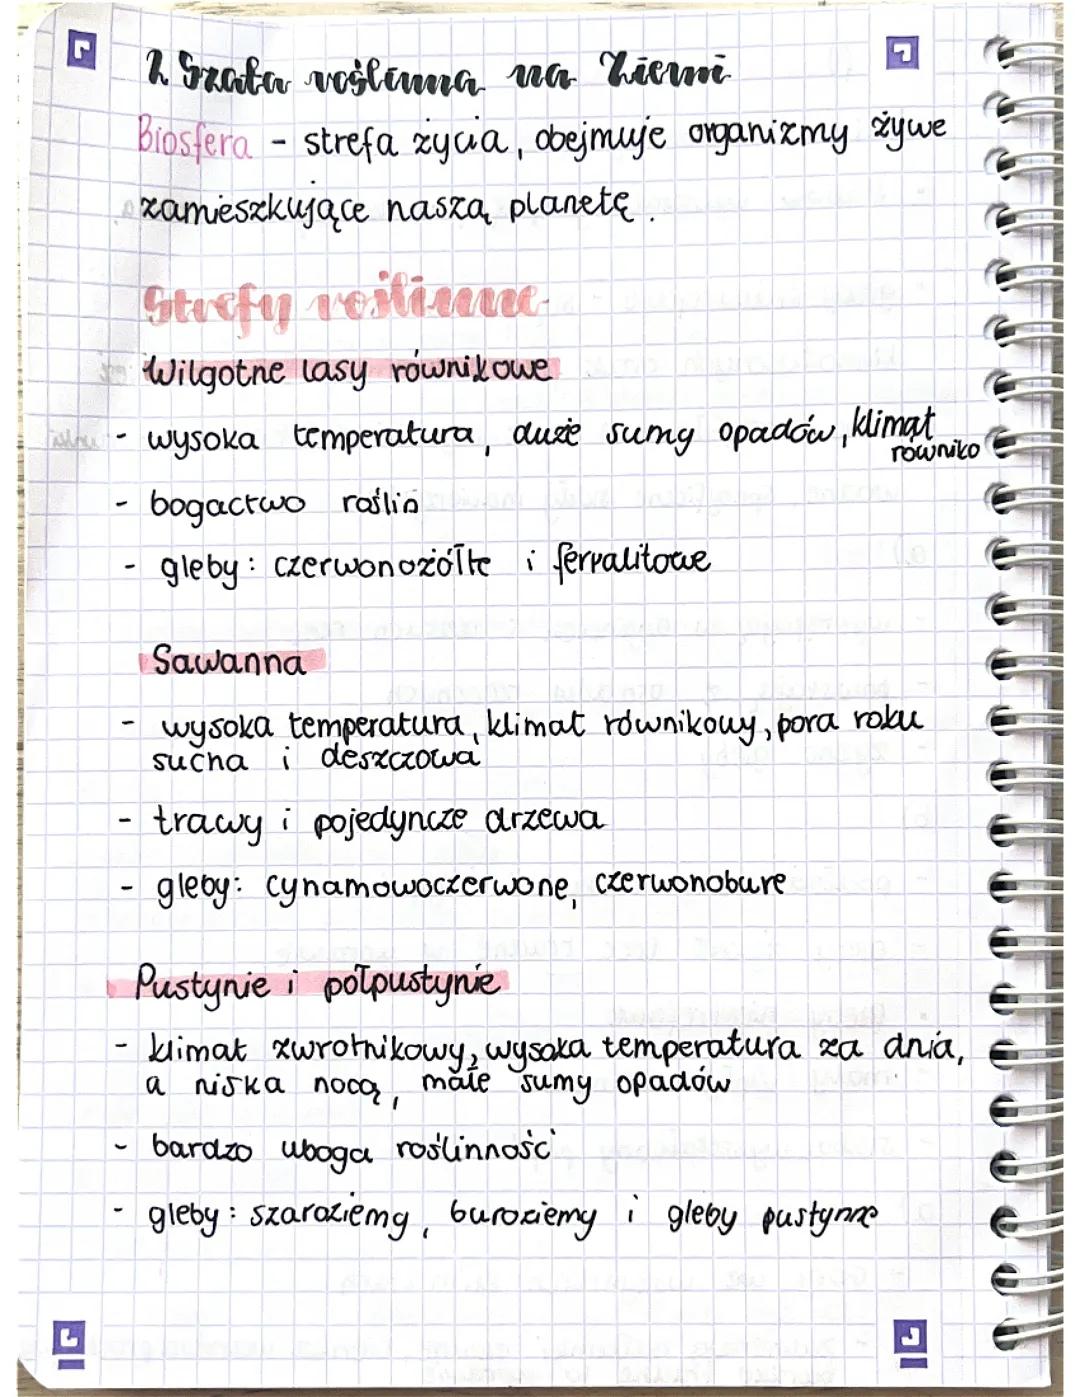 2. Szata roślinna na Ziemi
Biosfera - strefa życia, obejmuje organizmy żywe
zamieszkujące naszą planetę.
Strefy roślinne
Wilgotne lasy równikowe
- wysoka temperatura, duże sumy opadów, klimat
równiko
- bogactwo roślin
- gleby: czerwonożółte i ferralitowe
Sawanna
- wysoka temperatura, klimat równikowy, pora roku
sucha i deszczowa
- trawy i pojedyncze drzewa
- gleby: cynamowoczerwone, czerwonobure
Pustynie i półpustynie
- klimat zwrotnikowy, wysoka temperatura za dnia,
a niska nocą, małe sumy opadów
- bardzo uboga roślinność
- gleby: szaroziemy, buroziemy i gleby pustynne